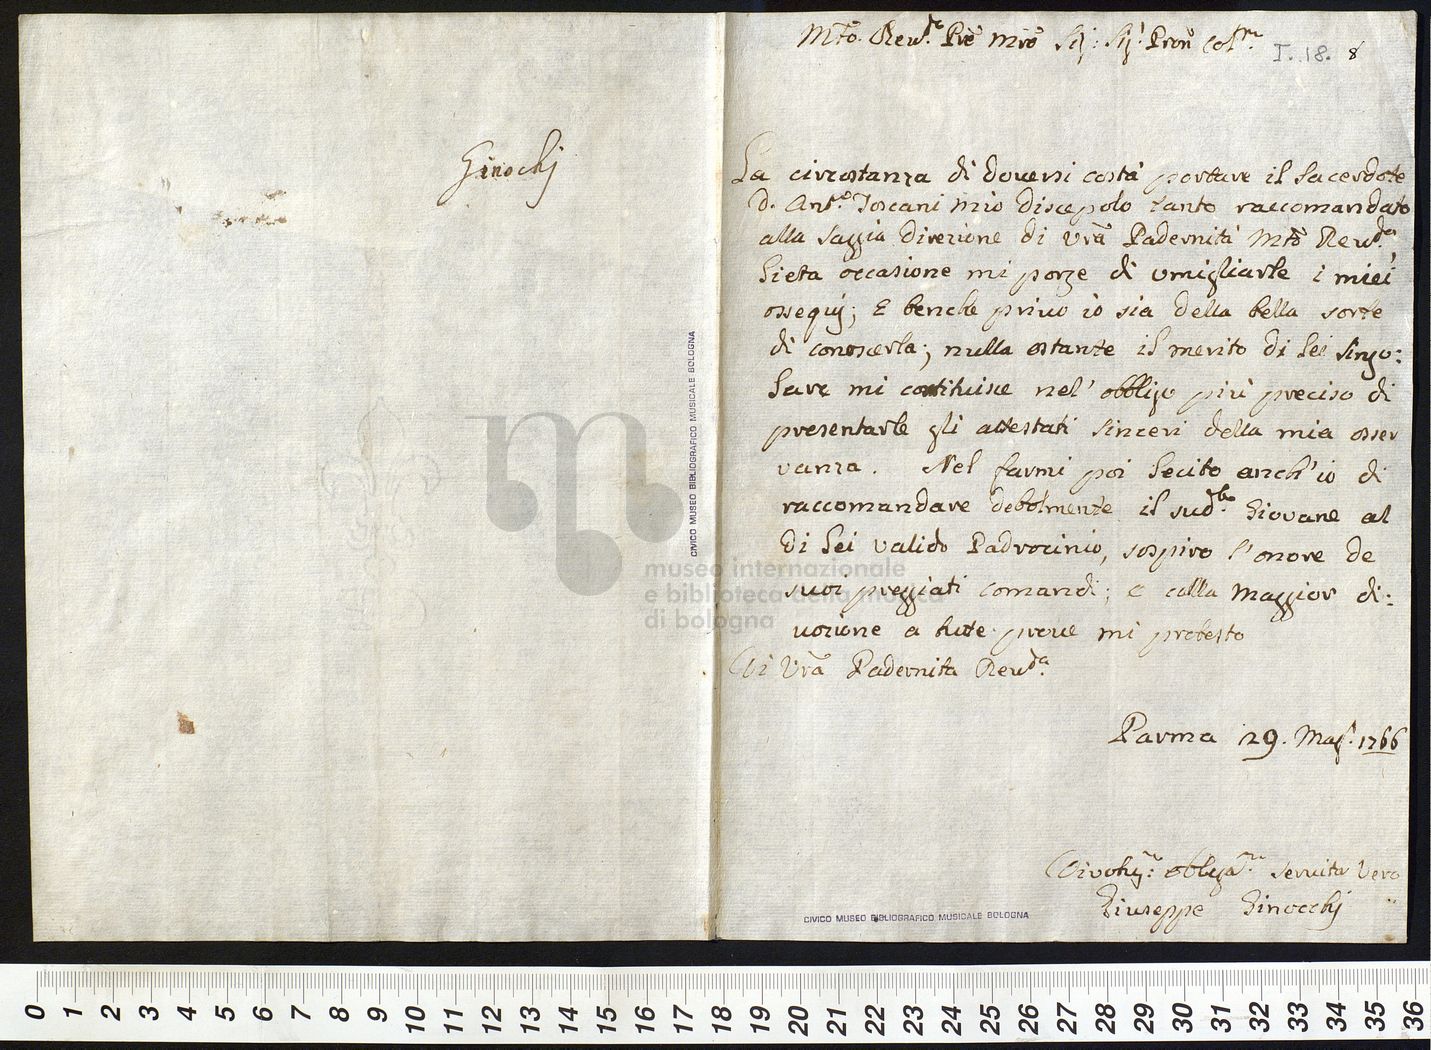 Ginochj
Mto. Revd.e Pre Mro Sig: Sig.r Pron Col.mo
I. 18. 8
La circostanza di doversi costà portare il Sacerdote
D. Ant.o Toscani mio discepolo tanto raccomandato
alla saggia direzione di Vrã Padernità Mto Revd.a
lieta occasione mi porge di umigliarle i miei
ossequj; E benche privo io sia della bella sorte
di conoscerla; nulla ostante il merito di Lei singo:
lare mi costituisce nel' obbligo più preciso di
presentarle gli attestati sinceri della mia osser
vanza. Nel farmi poi lecito anch'io di
raccomandare debolmente il sud.o Giovane al
di Lei valido Padrocinio, sospiro l'onore de
suoi preggiati comandi; e colla maggior di:
vozione a tute prove mi protesto
Di Vrã Padernita Revd.a
Parma 29. Mag. 1766
Divot.mo obblg.mo servito Vero
Giuseppe Ginocchj
CIVICO MUSEO BIBLIOGRAFICO MUSICALE BOLOGNA
CIVICO MUSEO BIBLIOGRAFICO MUSICALE BOLOGNA
museo internazionale
e biblioteca della musica
di bologna
0 1 2 3 4 5 6 7 8 9 10 11 12 13 14 15 16 17 18 19 20 21 22 23 24 25 26 27 28 29 30 31 32 33 34 35 36